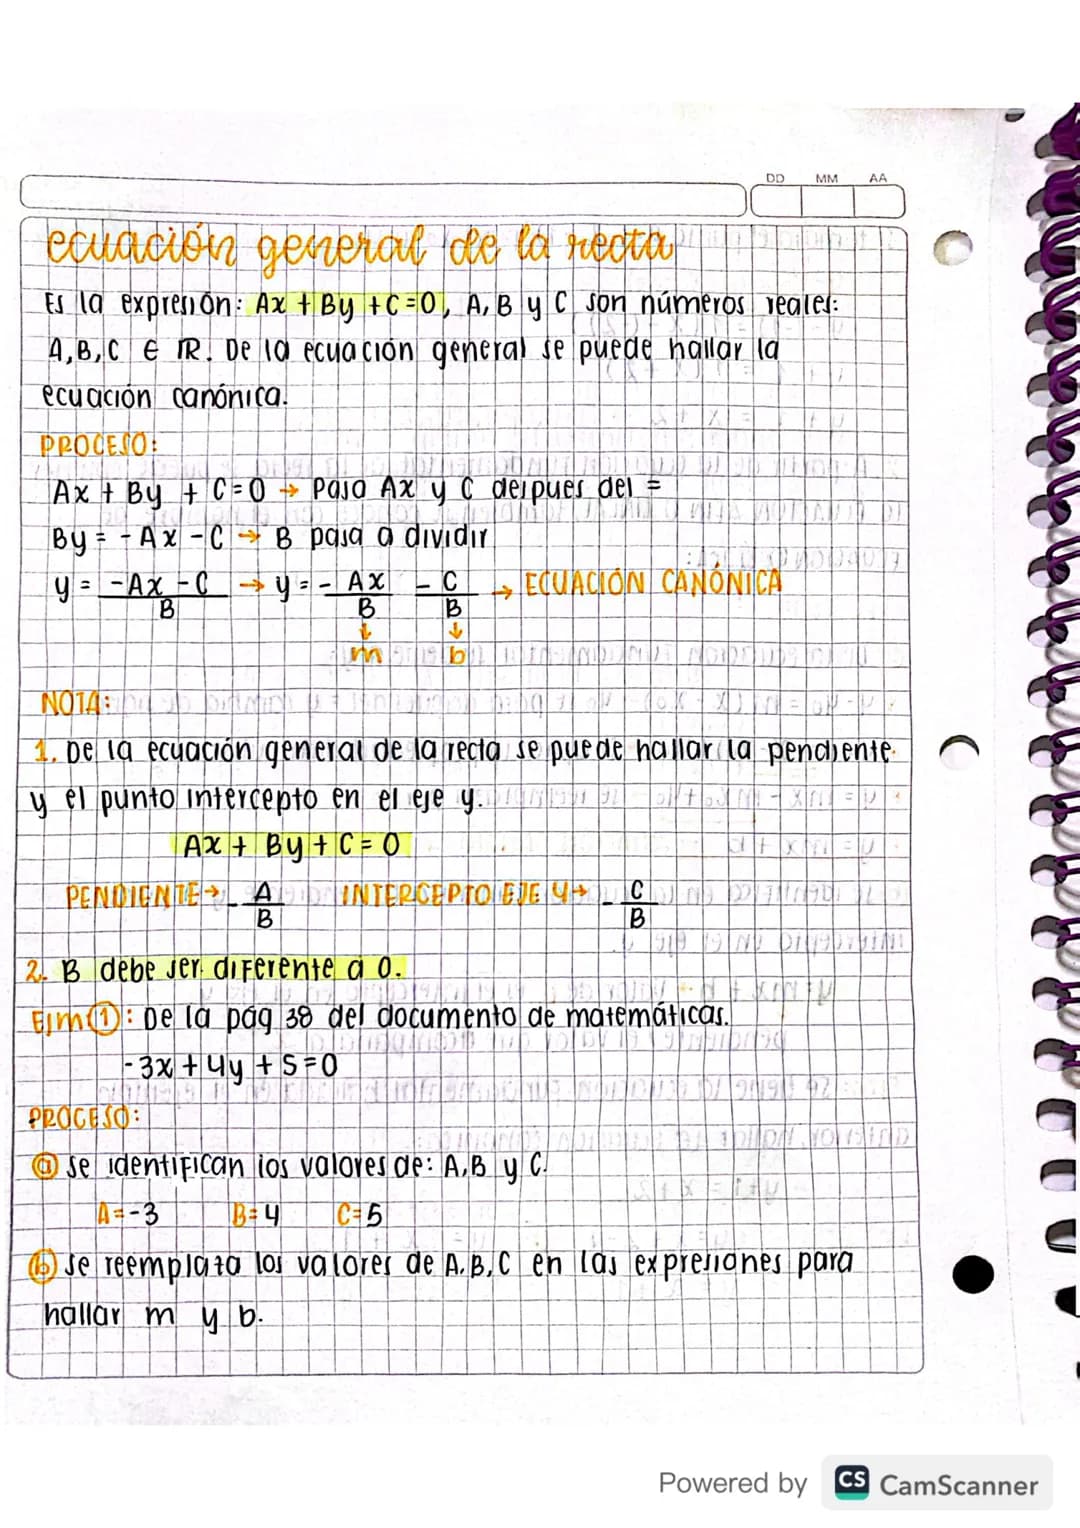 DD MM AA
ecuación general de la recta
Es la expresión: Ax + By + C = 0, A, B y C son números reales:
A, B, C ∈ ℝ. De la ecuación general se puede hallar la
ecuación canónica.
PROCESO:
Ax + By + C = 0 → Paso Ax y C despues del =
By = - Ax - C → B pasa a dividir
y = -Ax - C / B → y = - Ax / B - C / B → ECUACIÓN CANÓNICA
↓ ↓
m b
NOTA:
1. De la ecuación general de la recta se puede hallar la pendiente
y el punto intercepto en el eje y.
Ax + By + C = 0
PENDIENTE → - A / B INTERCEPTO EJE Y → - C / B
2. B debe ser diferente a 0.
Ejm 1: De la pág 38 del documento de matemáticas.
-3x + 4y + 5 = 0
PROCESO:
a se identifican los valores de: A, B y C.
A = -3 B = 4 C = 5
b se reemplaza los valores de A, B, C en las expresiones para
hallar m y b.
Powered by CS CamScanner